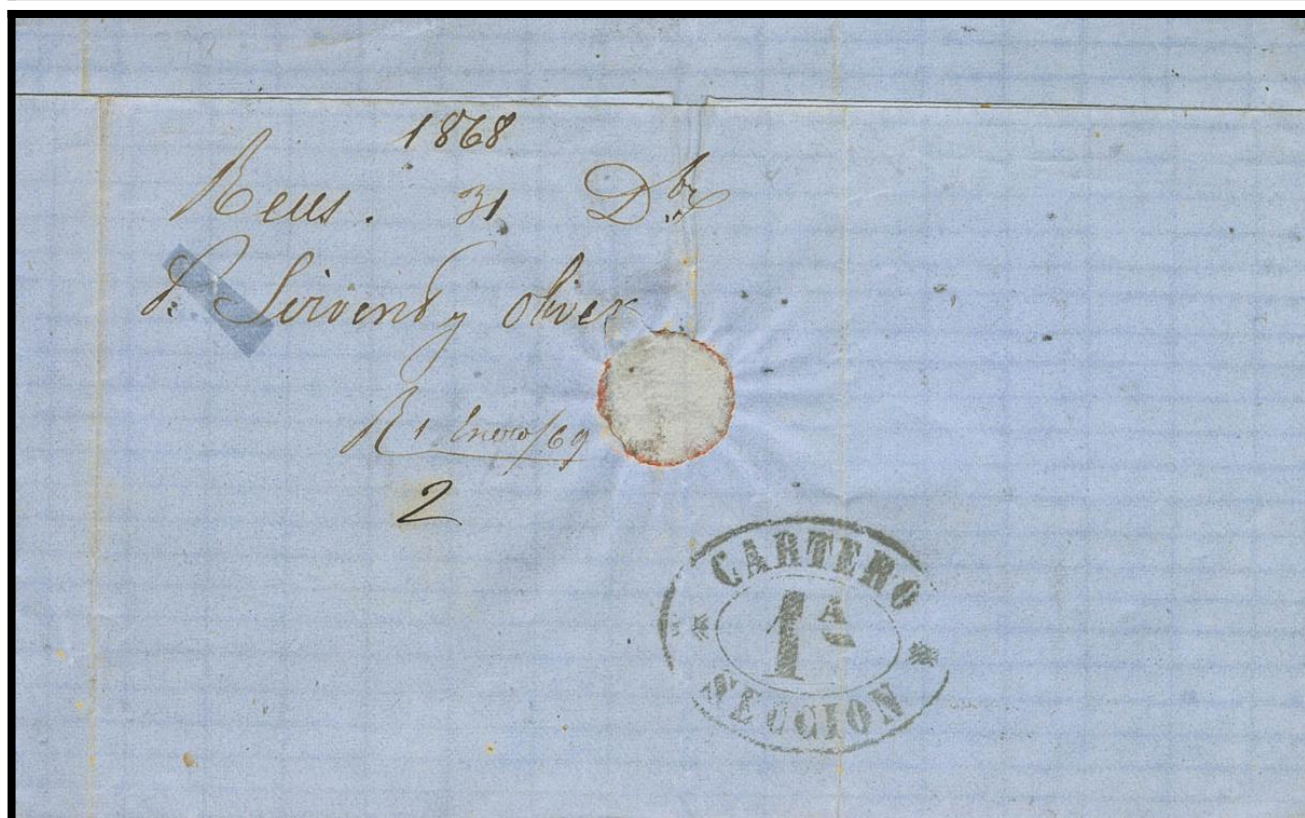 1868
Reus. 31 Dbr
de Sirvent y Oliver
R 1 Enero/69
2
CARTERO
1A
SECCION